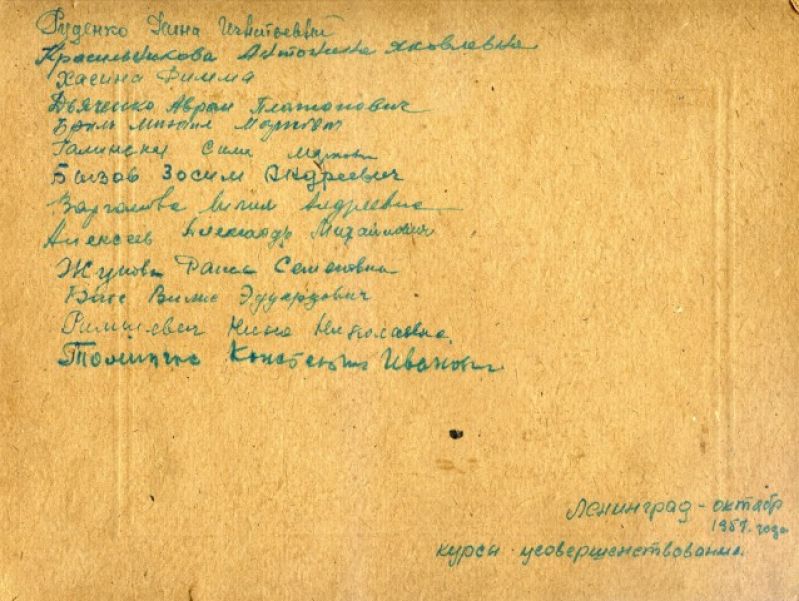 Руденко Инна Игнатьевна
Красильникова Антонина Яковлевна
Хасина Римма
Дьяченко Аврам Платонович
Михаил
Галинская
Бызов Зосим Андреевич
Андреевна
Алексеев Александр Михайлович
Жукова Раиса Семеновна
Вилис Эдуардович
Римшевич Нина Николаевна
Константин Иванович
Ленинград - октябрь
1957. года
курсы усовершенствования.